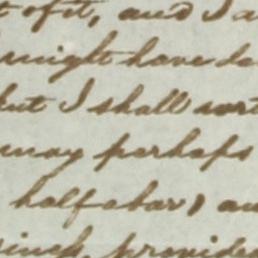 of it, and I a
might have
but I shall
may perhaps
half a bar) an
provide